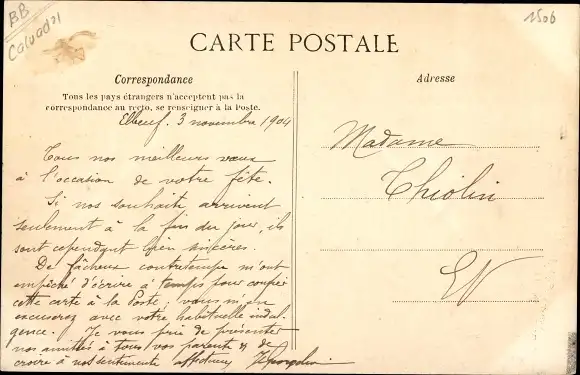 BB
Calvados
1506
CARTE POSTALE
Correspondance
Tous les pays étrangers n'acceptent pas la
correspondance au recto, se renseigner à la Poste.
Elbeuf. 3 novembre 1904
Tous nos meilleurs vœux
à l'occasion de votre fête.
Si nos souhaits arrivent
seulement à la fin du jour, ils
sont cependant bien sincères.
De fâcheux contretemps m'ont
empêché d'écrire à temps pour confier
cette carte à la Poste; vous m'en
excuserez avec votre habituelle indul-
gence. Je vous prie de présenter
nos amitiés à tous vos parents & de
croire à nos sentiments affectueux
Adresse
Madame
Thiolin
EV